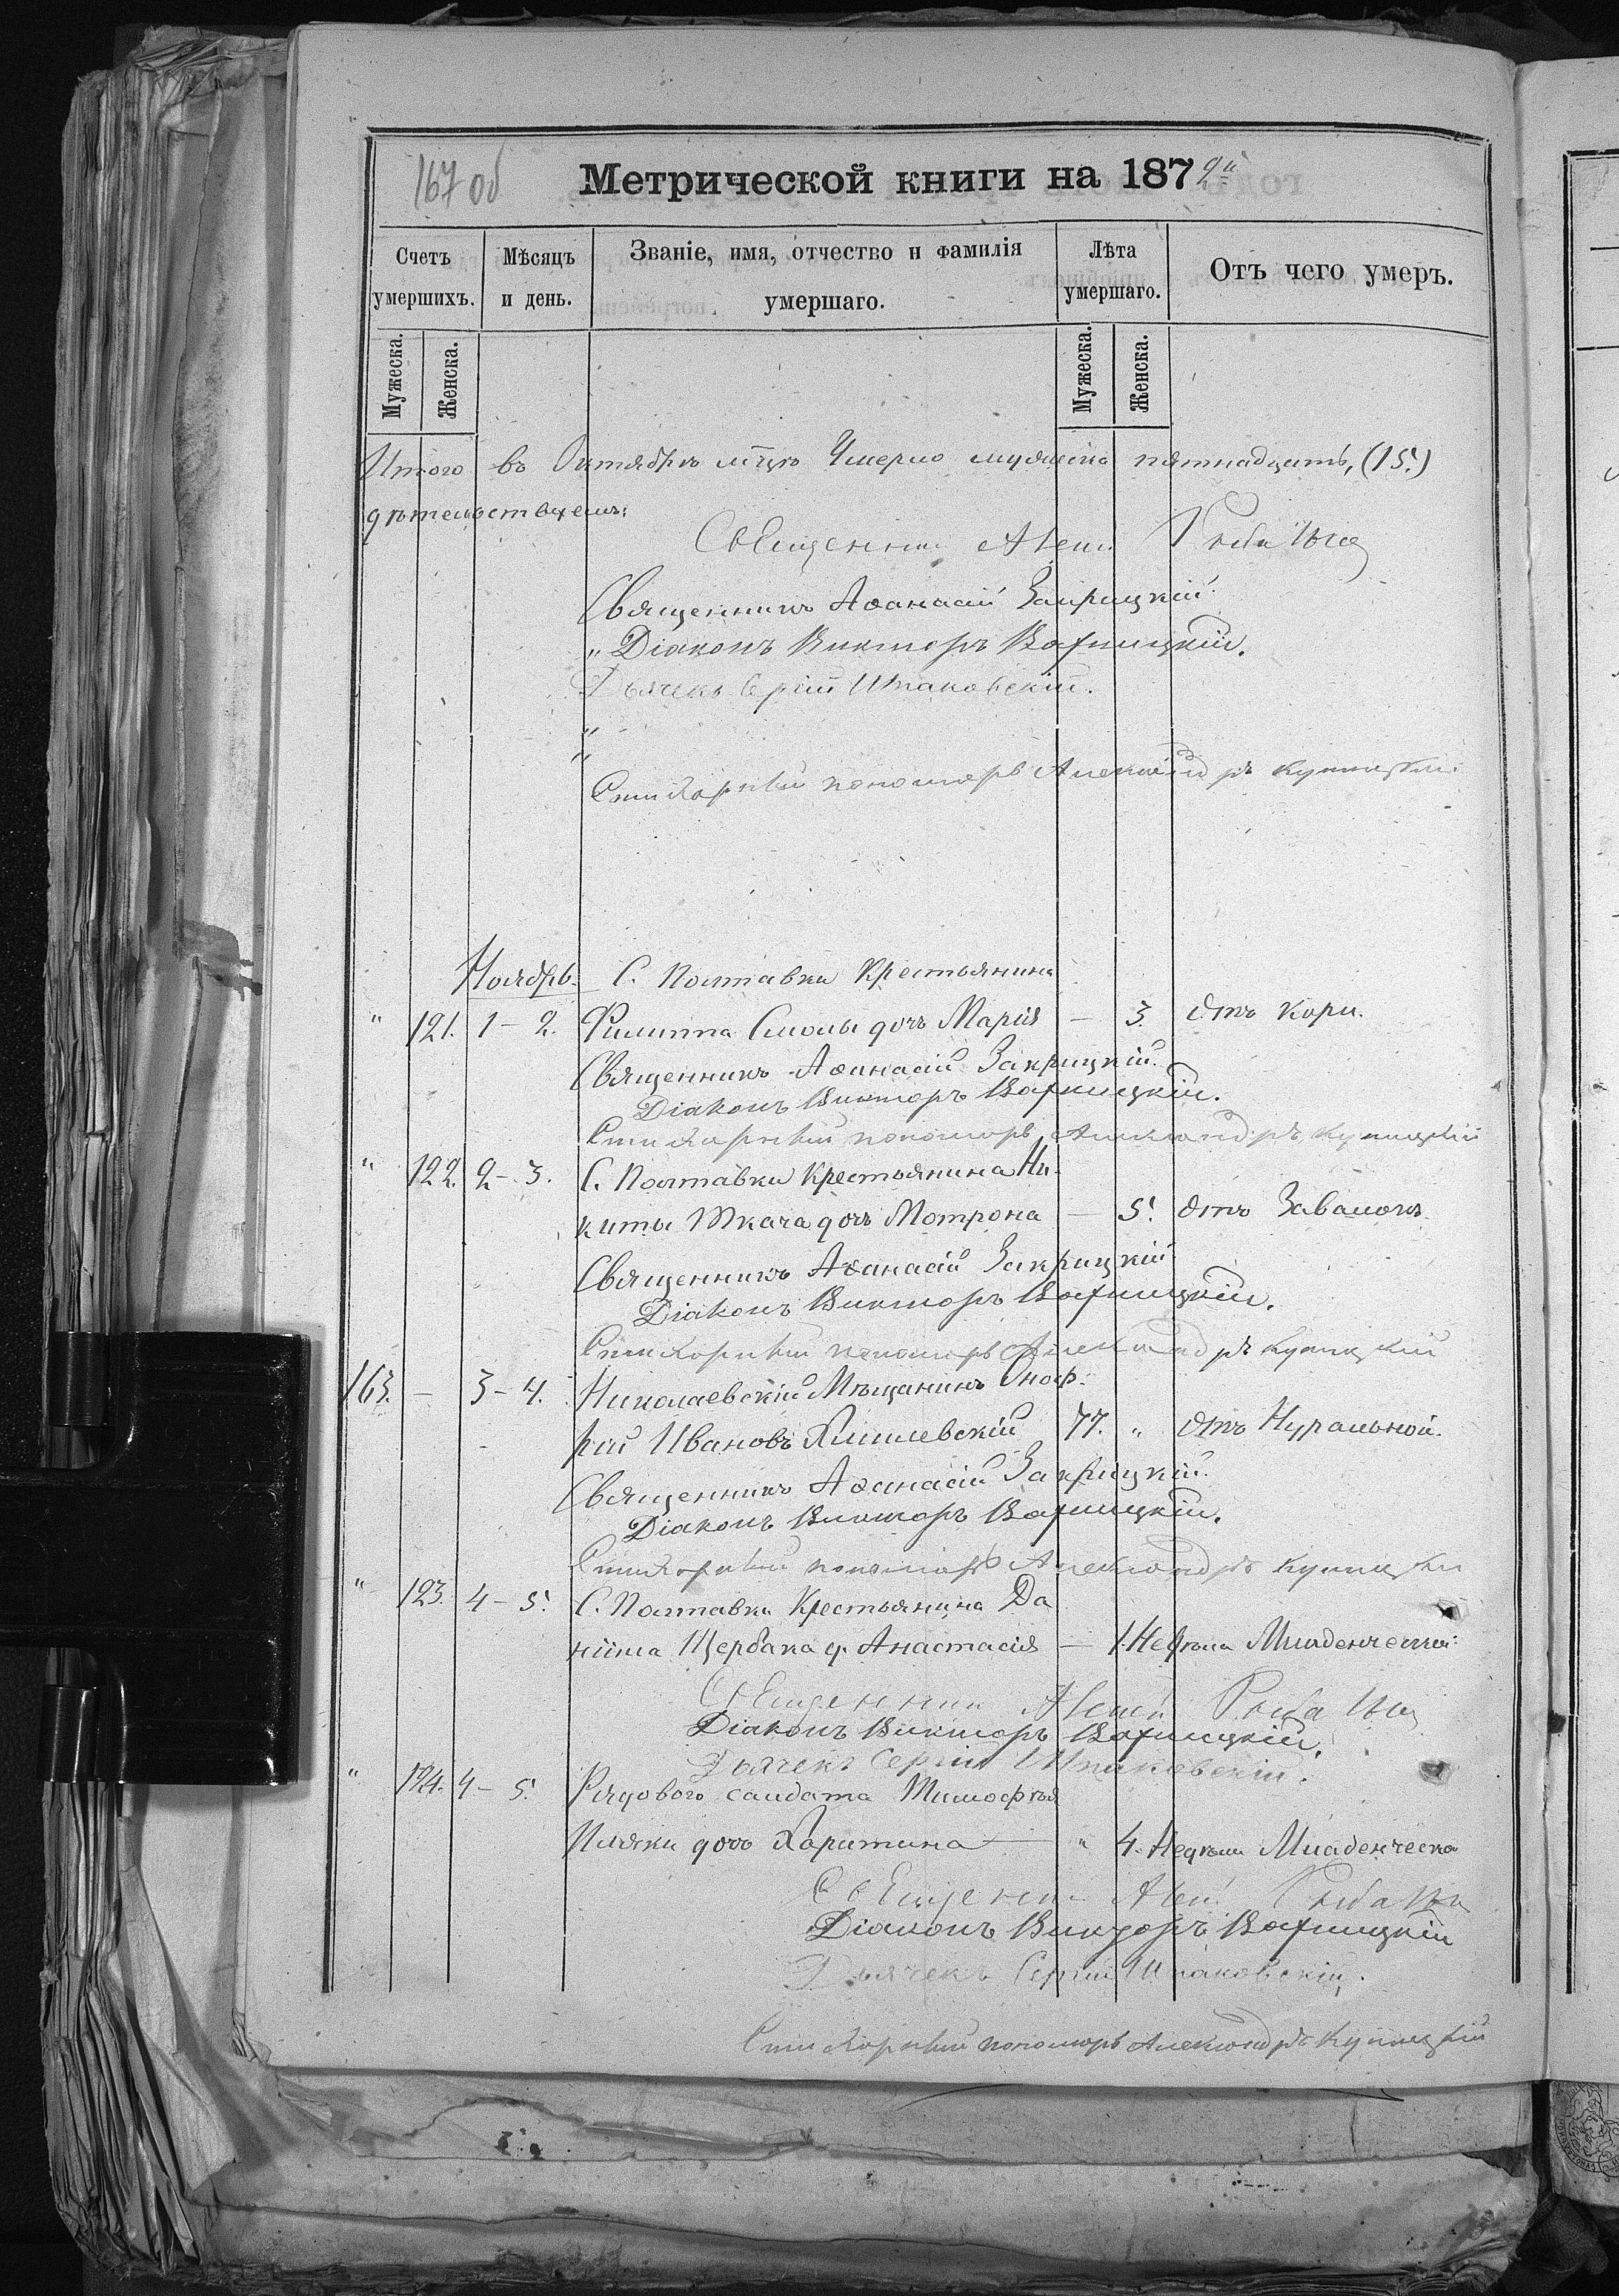 167 об
Метрической книги на 1872й
Счетъ умершихъ.
Мѣсяцъ и день.
Званіе, имя, отчество и фамилія умершаго.
Лѣта умершаго.
Отъ чего умеръ.
Мужеска. Женска. Мужеска. Женска.
Итого въ Октябрѣ м͞цѣ Умерло мужеска пятнадцать, (15.)
Священникъ
Священникъ Аѳанасій Закрицкій
" Діаконъ Викторъ Варницкій.
Дьячекъ Сергій Шпаковскій.
"
"
Стихарный пономарь Александръ
Ноябрь. С. Полтавки Крестьянина
" 121. 1 - 2. Филиппа Смолы дочь Марія — 3. Отъ Кори.
Священникъ Аѳанасій Закрицкій.
Діаконъ Викторъ Варницкій.
Стихарный пономарь Александръ
" 122. 2 - 3. С. Полтавки Крестьянина Ни-
киты Ткача дочь Мотрона — 5. Отъ Завалокъ
Священникъ Аѳанасій Закрицкій
Діаконъ Викторъ Варницкій.
Стихарный пономарь Александръ
163. — 3 - 4. Николаевскій Мѣщанинъ Оноф-
рій Ивановъ 77. " Отъ Нуральной.
Священникъ Аѳанасій Закрицкій.
Діаконъ Викторъ Варницкій.
Стихарный пономарь Александръ
" 123. 4 - 5. С. Полтавки Крестьянина Да
ніила Щербака д. Анастасія — 1. Недѣли Младенческой
Священникъ
Діаконъ Викторъ Варницкій.
Дьячекъ Сергій Шпаковскій.
" 124. 4 - 5. Рядового солдата Тимофѣя
дочь Харитина — " 4. Недѣли Младенческо
Священникъ
Діаконъ Викторъ Варницкій
Дьячекъ Сергій Шпаковскій.
Стихарный пономарь Александръ